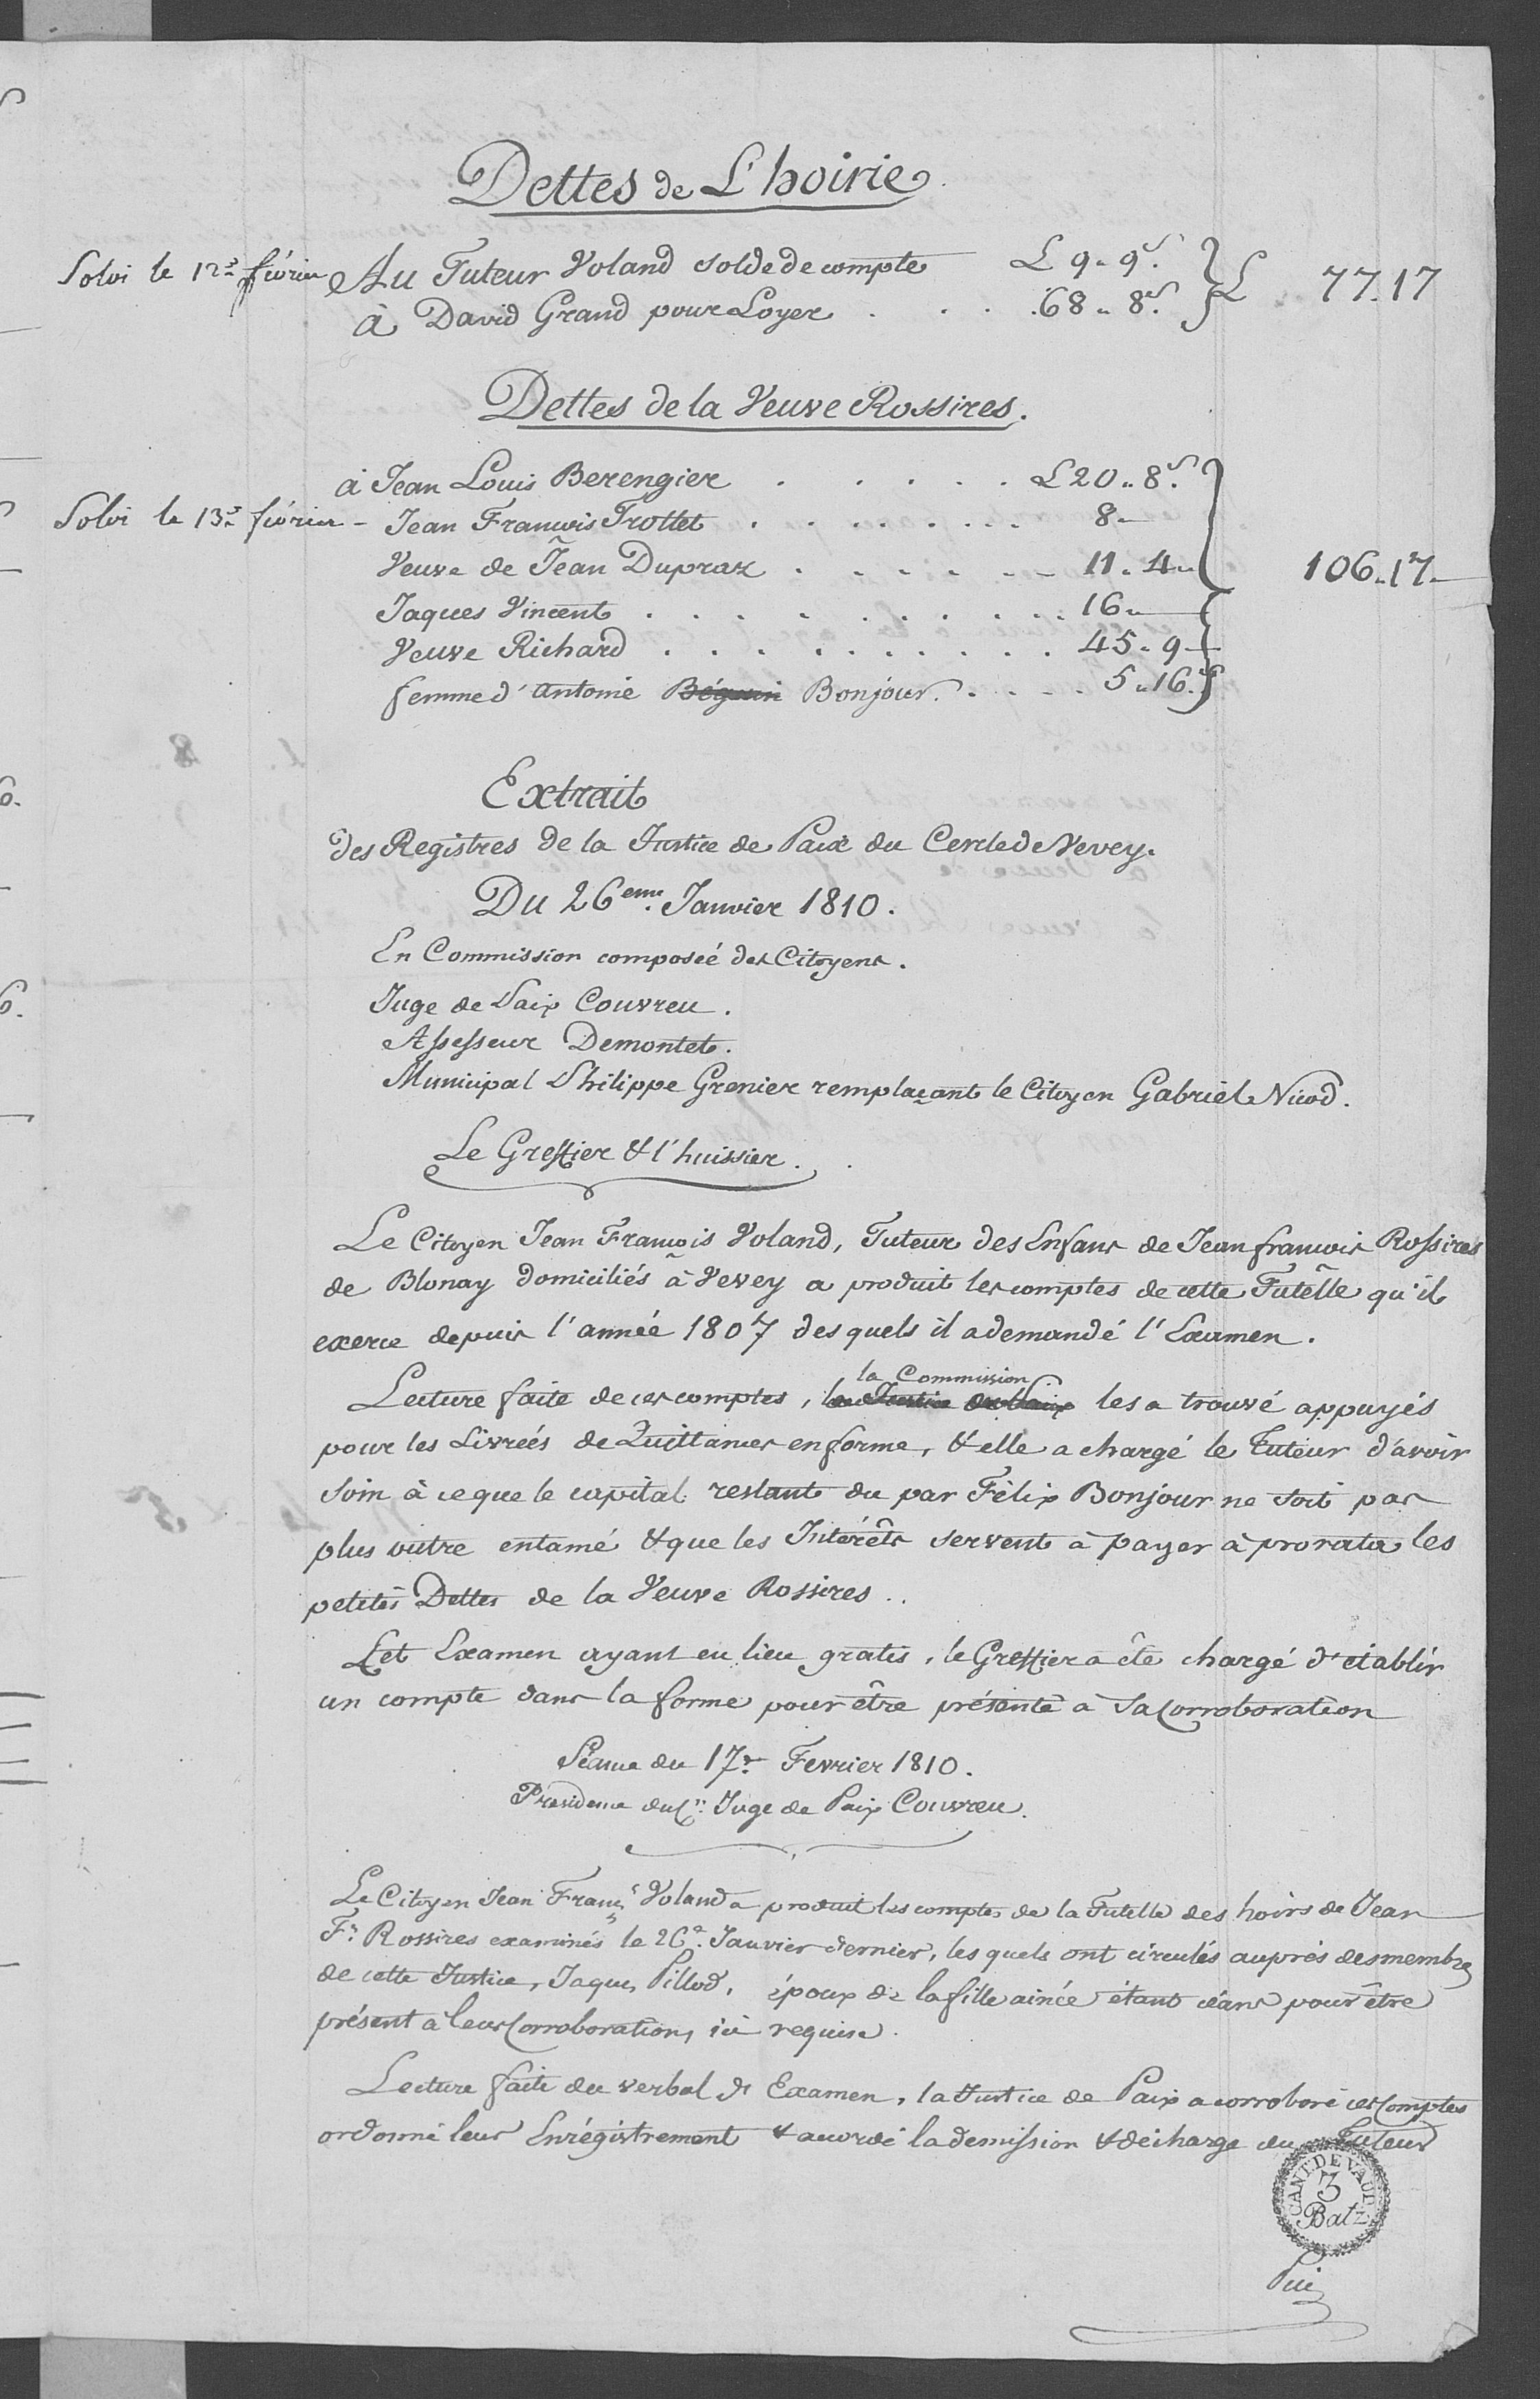 Dettes de L'hoirie
Solvi le 12e. février Au Tuteur Voland solde de compte L 9 " 9s. } L 77. 17
à David Grand pour Loyer . . . . 68 " 8s.
Dettes de la Veuve Rossires.
à Jean Louis Berengier . . . . . L 20 " 8s.
Solvi le 13e. février - Jean François Trottet . . . . . . . 8 "
Veuve de Jean Dupraz . . . . . . 11 " 4 " 106 " 17 "
Jaques Vincent . . . . . . . . . 16 "
Veuve Richard . . . . . . . . . 45 " 9
femme d'Antoine Béguin Bonjour. . . . . 5 " 16.s
Extrait
des Registres de la Justice de Paix du Cercle de Vevey.
Du 26eme. Janvier 1810.
En Commission composée des Citoyens.
Juge de Paix Couvreu.
Assesseur Demontet.
Municipal Philippe Grenier remplaçant le Citoyen Gabriel Nicod.
Le Greffier & l'huissier.
Le Citoyen Jean François Voland, Tuteur des Enfans de Jean françois Rossires
de Blonay domiciliés à Vevey a produit les comptes de cette Tutelle qu'il
exerce depuis l'année 1807 des quels il a demandé l'Examen.
la Commission
Lecture faite de ces comptes, la Justice de Paix les a trouvé appuyés
pour les Livrées de Quittances en forme, & elle a chargé le Tuteur d'avoir
soin à ce que le capital restant du par Félix Bonjour ne soit pas
plus outre entamé & que les Intérêts servent à payer à prorata les
petites Dettes de la Veuve Rossires..
Cet Examen ayant eu lieu gratis, le Greffier a été chargé d'etablir
un compte dans la forme pour être présenté à sa Corroboration
Séance du 17e. Fevrier 1810.
Présidence du Cn. Juge de Paix Couvreu.
Le Citoyen Jean Franç.s Voland a produit les comptes de la Tutelle des hoirs de Jean
Fs. Rossires examinés le 26e. Janvier dernier, les quels ont circulés auprès des membres
de cette Justice, Jaques Pillod, époux de la fille ainée étant céans pour être
présent à leur Corroboration, ici requise.
Lecture faite du verbal d'Examen, la Justice de Paix a corroboré ces Comptes
ordonné leur Enrégistrement & accordé la demission & décharge du Tuteur
CANT. DE VAUD
3
Batz